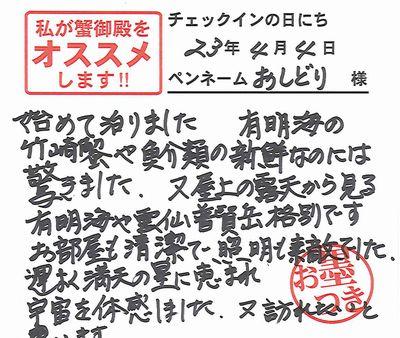 私が蟹御殿を
オススメ
します!!
チェックインの日にち
23年4月4日
ペンネーム あしどり 様
始めて泊りました 有明海の
竹崎蟹や魚介類の新鮮なのには
驚きました、又屋上の露天から見る
有明海や雲仙普賢岳格別です
お部屋も清潔で照明も素敵でした、
運よく満天の星に恵まれ
宇宙を体感しました、又訪れたいと
お墨
つき